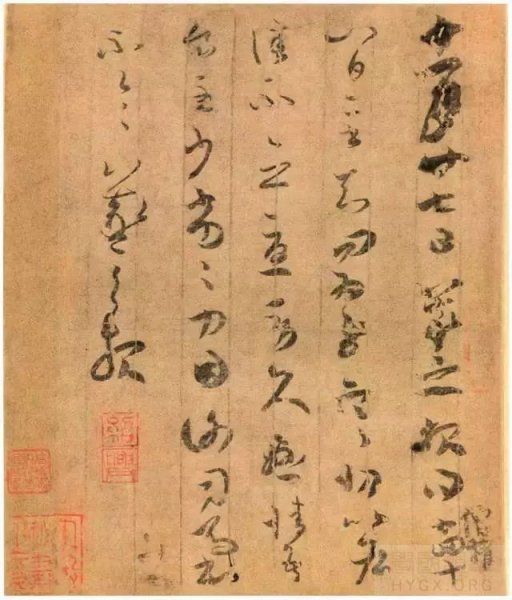 十一月廿七日羲之報得十四十
八日二書知問為慰寒切比各
佳不念憂勞久懸情吾
食甚少劣劣力因謝司馬書
不一一羲之報
紹興
HYGX.ORG